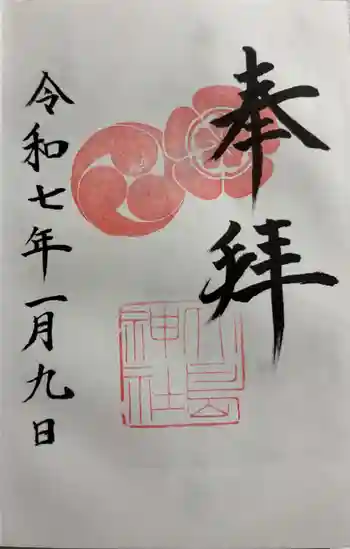 奉拝
神社
令和七年一月九日